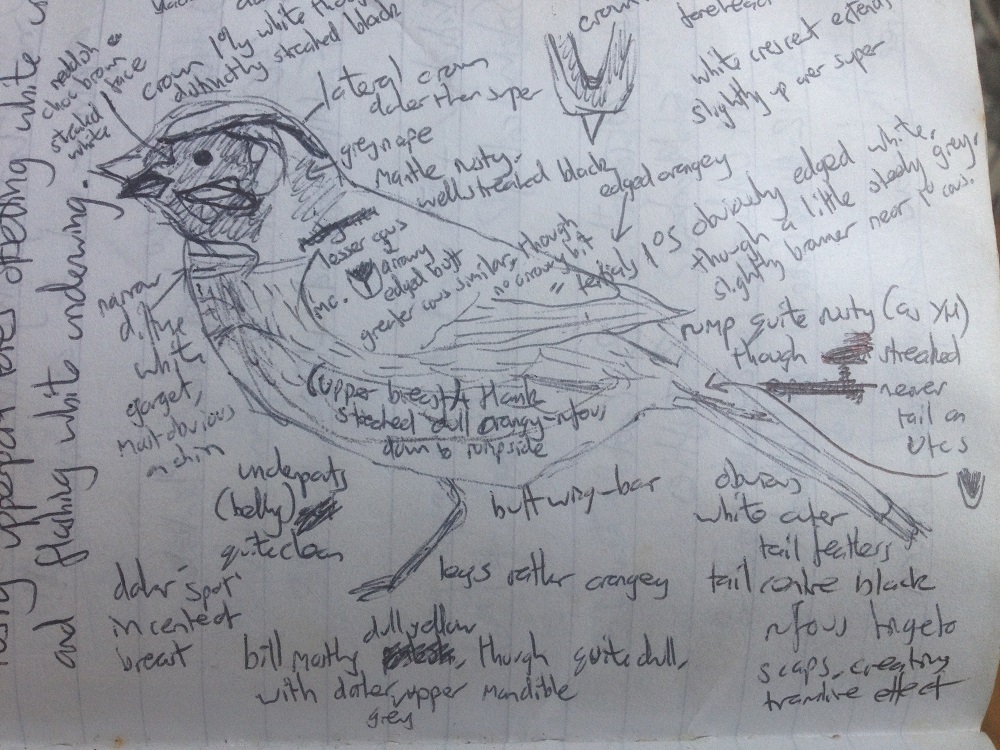 crown
forehead
crown 1% white though
distinctly streaked black
reddish
choc brown
streaked face
white
lateral crown
darker than super
white crescent extends
slightly up over super
grey nape
mantle rusty-
well streaked black
edged orangey
lesser covs
inc. arrowy
edged buff
greater covs similar, though
no arrowy bit
" tertials
1°s obviously edged white,
though a little steely grey,
slightly browner near 1° covs.
rump quite rusty (as YH)
though streaked
nearer
tail on
UTCs
narrow
diffuse
white
gorget,
most obvious
on chin
(upper breast & flank
streaked dull orangy-rufous
down to rumpside
underparts
(belly)
quite clean
buff wing-bar
obvious
white outer
tail feathers
tail centre black
legs rather orangey
darker 'spot'
in center of
breast
dull yellow
bill mostly , though quite dull,
with darker, upper mandible
grey
rufous fringe to
scaps, creating
tramline effect
and flashing white underwing.
upperpart opening white